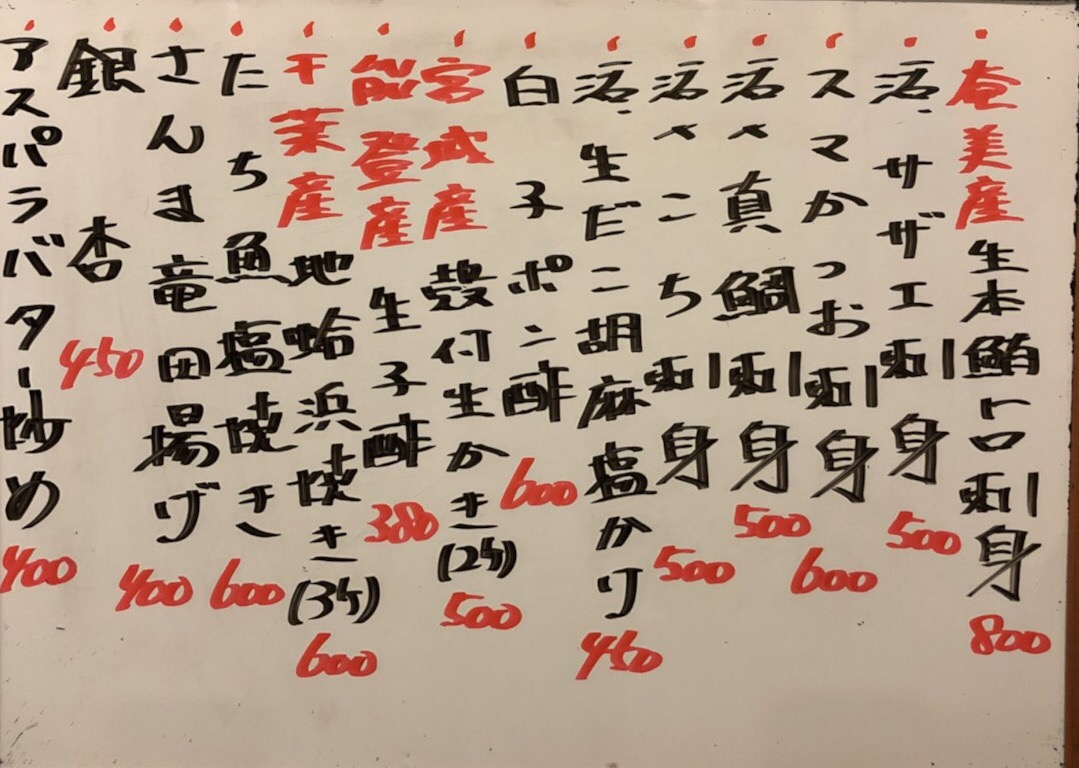 奄美産生本鮪トロ刺身 800
活サザエ刺身 500
スマかつお刺身 600
活〆真鯛刺身 500
活〆こち刺身 500
活生だこ胡麻塩かけ 450
白子ポン酢 600
宮城産殻付生かき(2ケ) 500
能登産生子酢 380
千葉産地蛤浜焼き(3ケ) 600
たち魚塩焼き 600
さんま竜田揚げ 400
銀杏 450
アスパラバター炒め 400